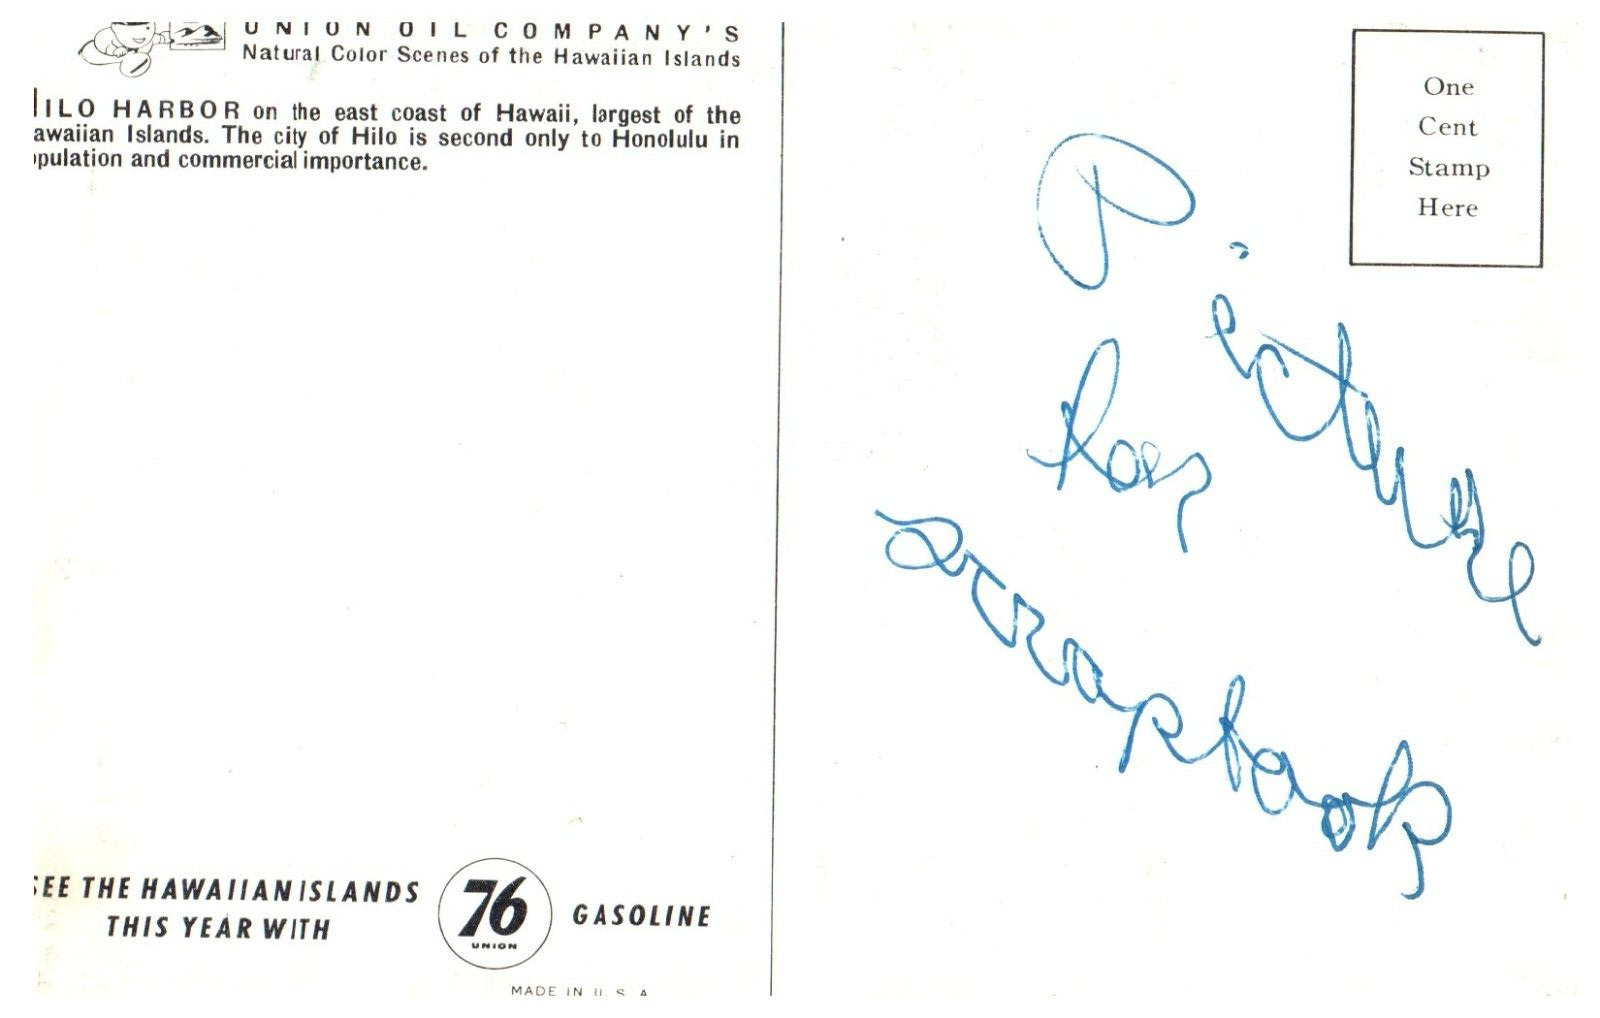 UNION OIL COMPANY'S
Natural Color Scenes of the Hawaiian Islands
HILO HARBOR on the east coast of Hawaii, largest of the
awaiian Islands. The city of Hilo is second only to Honolulu in
opulation and commercial importance.
SEE THE HAWAIIAN ISLANDS
THIS YEAR WITH
76
UNION
GASOLINE
MADE IN U. S. A
One
Cent
Stamp
Here
Pictures
for
scrapbook